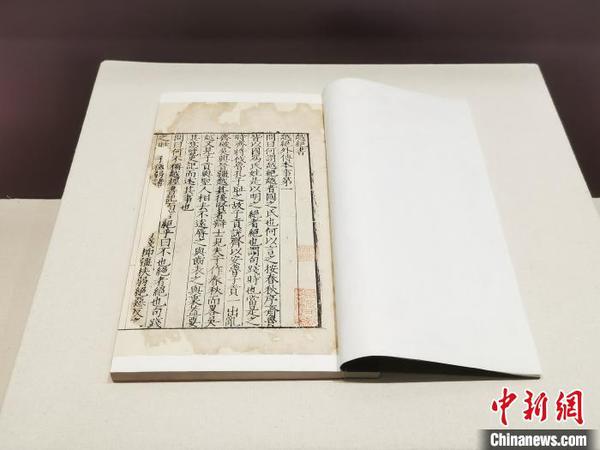 越絕書
越絕外傳本事第一
問曰何謂越絕越者國之氏也何以言之按春秋序齊魯
皆以國為氏姓是以明之絕者絕也謂句踐時也當是之
時齊將伐魯孔子恥之故子貢說齊以安魯子貢 出亂
齊破吳興晉彊越其後賢者辯士見夫子作春秋而畧吳
越又見子貢與聖人相去不遠脣之與齒表之與裏蓋要
其意覽史記而述其事也
問曰何不稱越經書記而言絕乎曰不也絕者絕也句踐
之時 子微弱諸 踐抑彊扶弱絕惡反之
中新網
Chinanews.com